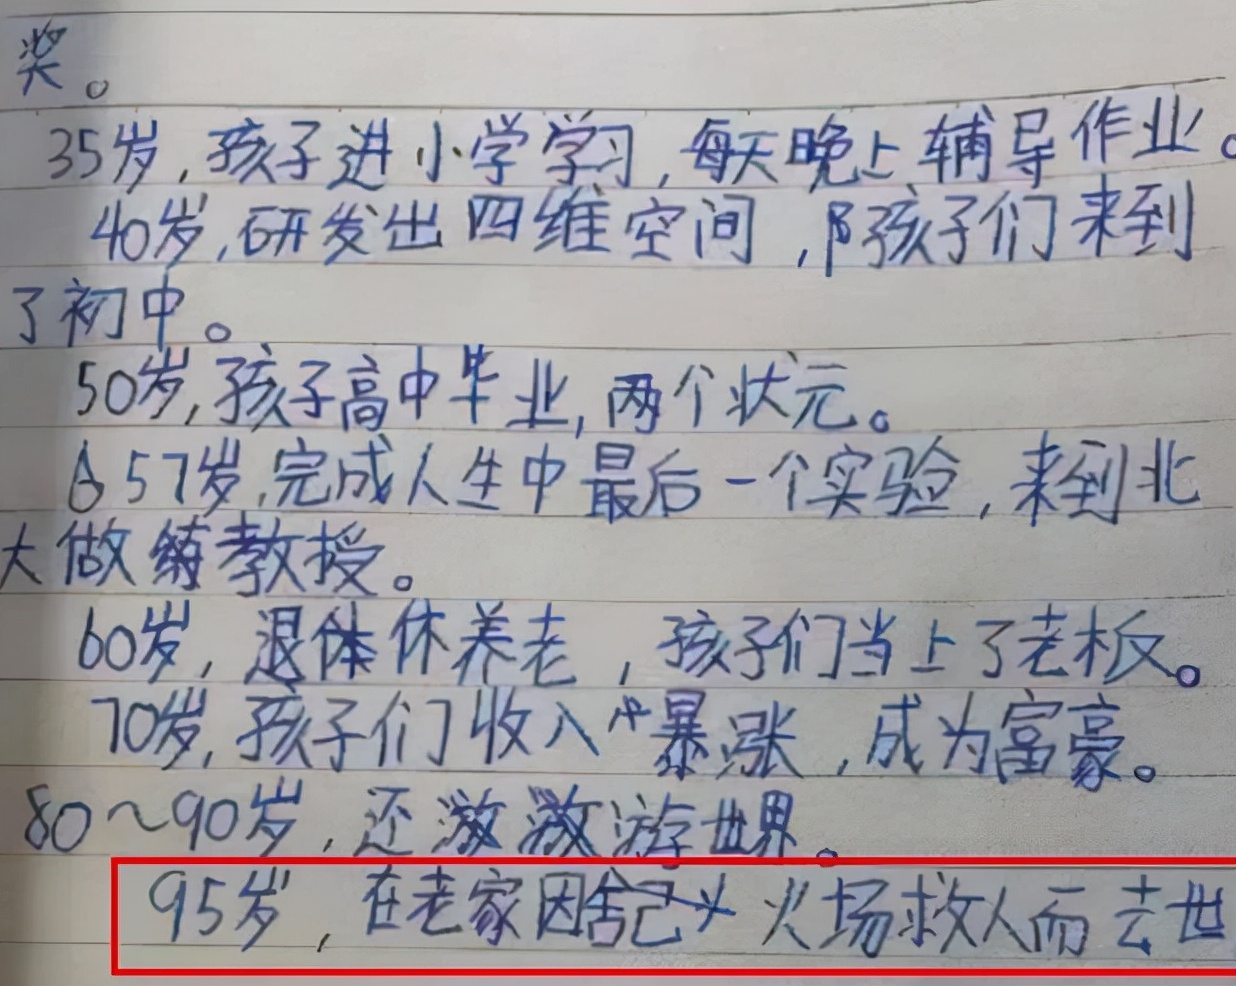 奖。
35岁,孩子进小学学习,每天晚上辅导作业。
40岁,研发出四维空间,孩子们来到
了初中。
50岁,孩子高中毕业,两个状元。
57岁,完成人生中最后一个实验,来到北
大做教授。
60岁,退休养老,孩子们当上了老板。
70岁,孩子们收入暴涨,成为富豪。
80~90岁,还游世界。
95岁,在老家因舍己火场救人而去世